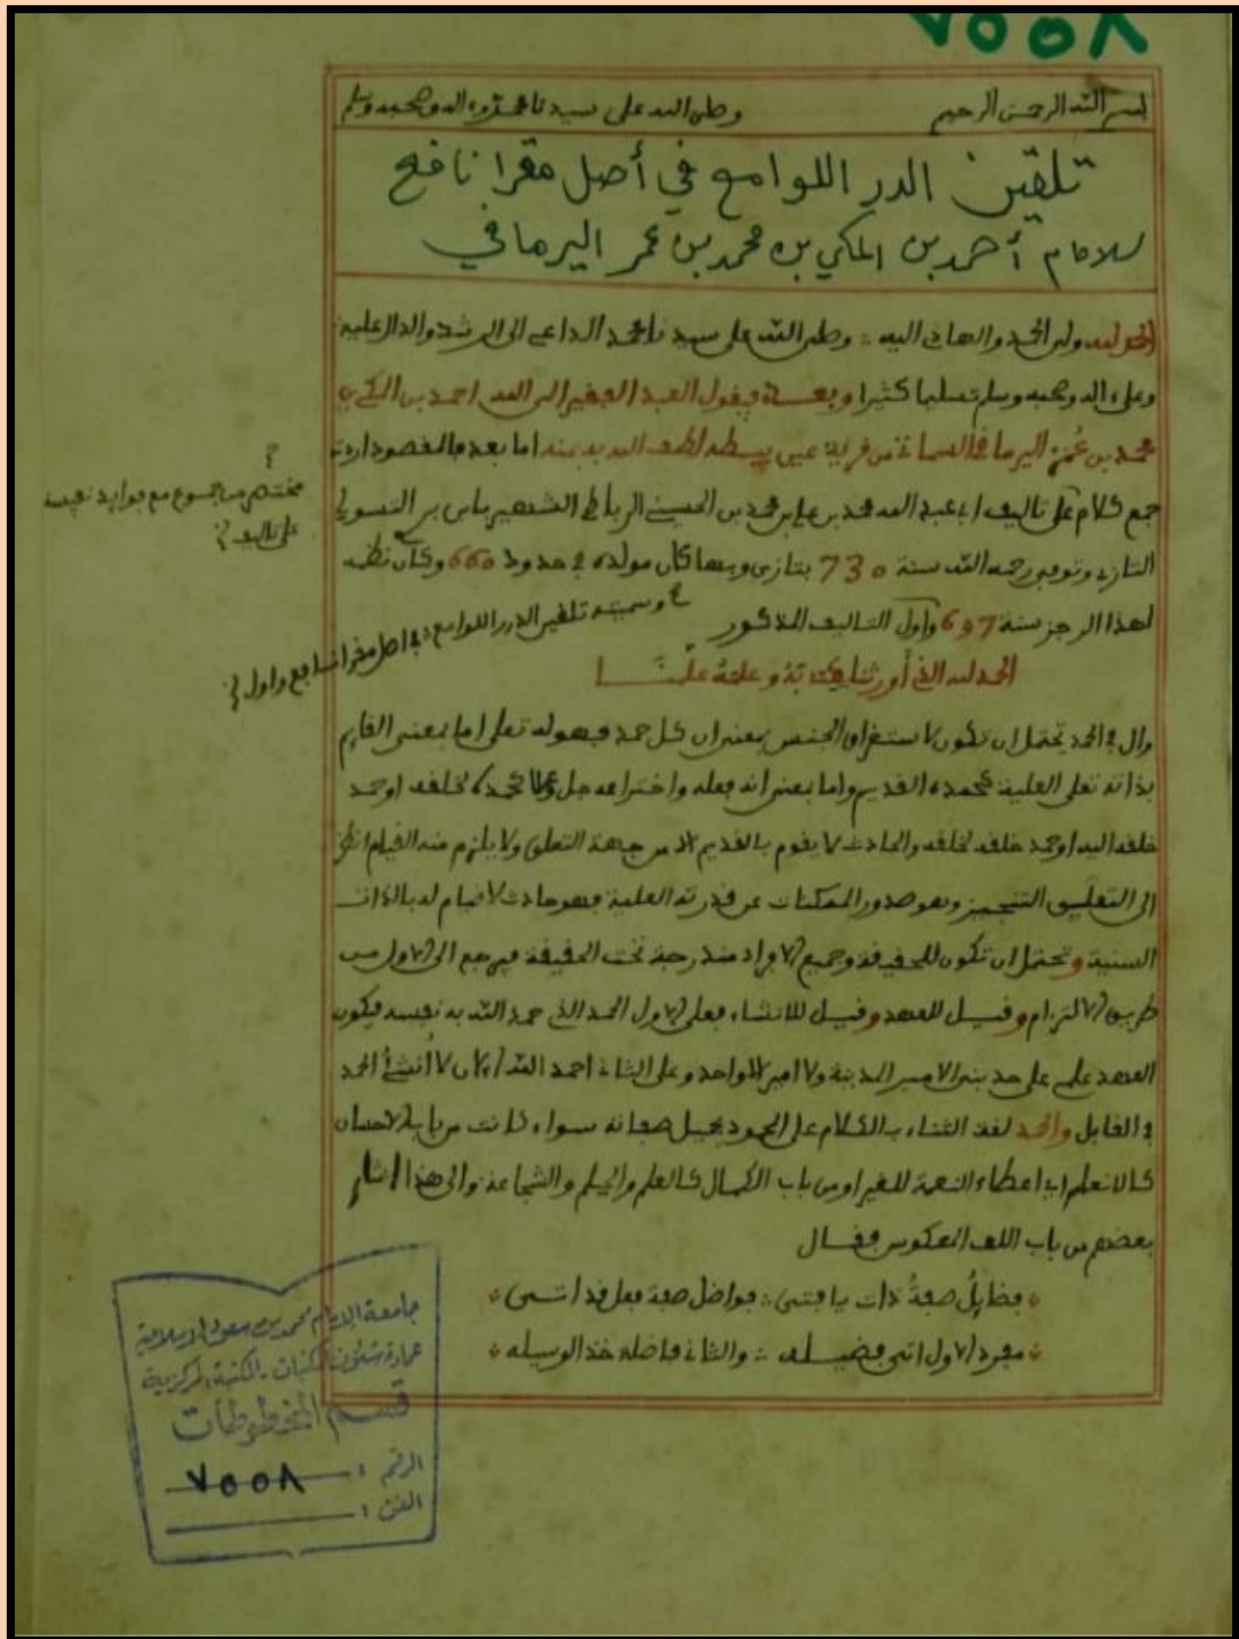 ٧٥٥٨
بسم الله الرحمن الرحيم وصلى الله على سيدنا محمد وءاله وصحبه وسلم
تلقين الدر اللوامع في أصل مقرا نافع
للامام أحمد بن المكي بن محمد بن عمر اليرماقي
الحمد لله ولي الحمد والهادي اليه ؞ وصلى الله على سيدنا محمد الداعي الى الرشد والدال عليه
وعلى ءاله وصحبه وسلم تسليما كثيرا وبعد فيقول العبد الفقير الى الله احمد بن المكي بن
محمد بن عمر اليرما من قرية عين لطف الله به بمنه اما بعد فالمقصود اردت
جمع كلام على تاليف ابي عبد الله محمد بن علي بن محمد بن الحسين الرباطي الشهير بابن بري التسولي
التازي وتوفي رحمه الله سنة 730 بتازى وبها كان مولده في حدود 660 وكان نظمه
لهذا الرجز سنة 697 واول التاليف المذكور
مختصر من مجموع مع فوايد نفيسة
على تاليف
وسميته تلقين الدرر اللوامع في اصل مقرا نافع واول
الحمد لله الذي أورثنا كتابه وعلمه علمنا
وال في الحمد يحتمل ان تكون لاستغراق الجنس بمعنى ان كل حمد فهو له تعلى اما بمعنى القايم
بذاته تعلى العلية كحمده القديم واما بمعنى انه فعله واختراعه جل وعلا كحمده لخلقه او حمد
خلقه اليه او حمد خلقه لخلقه والحادث لا يقوم بالقديم الا من جهة التعلق ولا يلزم منه القيام
الى التعليق التنجيزي وهو صدور الممكنات عن قدرته العلية فهو حادث لا قيام له بالذات
السنية وتحتمل ان تكون للحقيقة وجميع الافراد مندرجة تحت الحقيقة فيرجع الى الاول من
طريق الالتزام وقيل للعهد وقيل للانشاء فعلى الاول الحمد الذي حمد الله به نفسه فيكون
العهد علمي على حد بنى الامير المدينة ولا امير الا واحد وعلى الثاني احمد الله الان لا أنشئ الحمد
في القابل والحمد لغة الثناء بالكلام على المحمود بجميل صفاته سواء كانت من باب الاحسان
كالانعام اي اعطاء النعمة للغير او من باب الكمال كالعلم والحلم والشجاعة والى هذا اشار
بعضهم من باب اللف المعكوس فقال
فضايل صفة ذات يا فتى ؞ فواضل صفة فعل قد اتى
مفرد الاول اتى فضيله ؞ والثاني فاضله خذ الوسيله
جامعة الإمام محمد بن سعود الإسلامية
عمادة شئون المكتبات - المكتبة المركزية
قسم المخطوطات
الرقم : ٧٥٥٨
الفن :